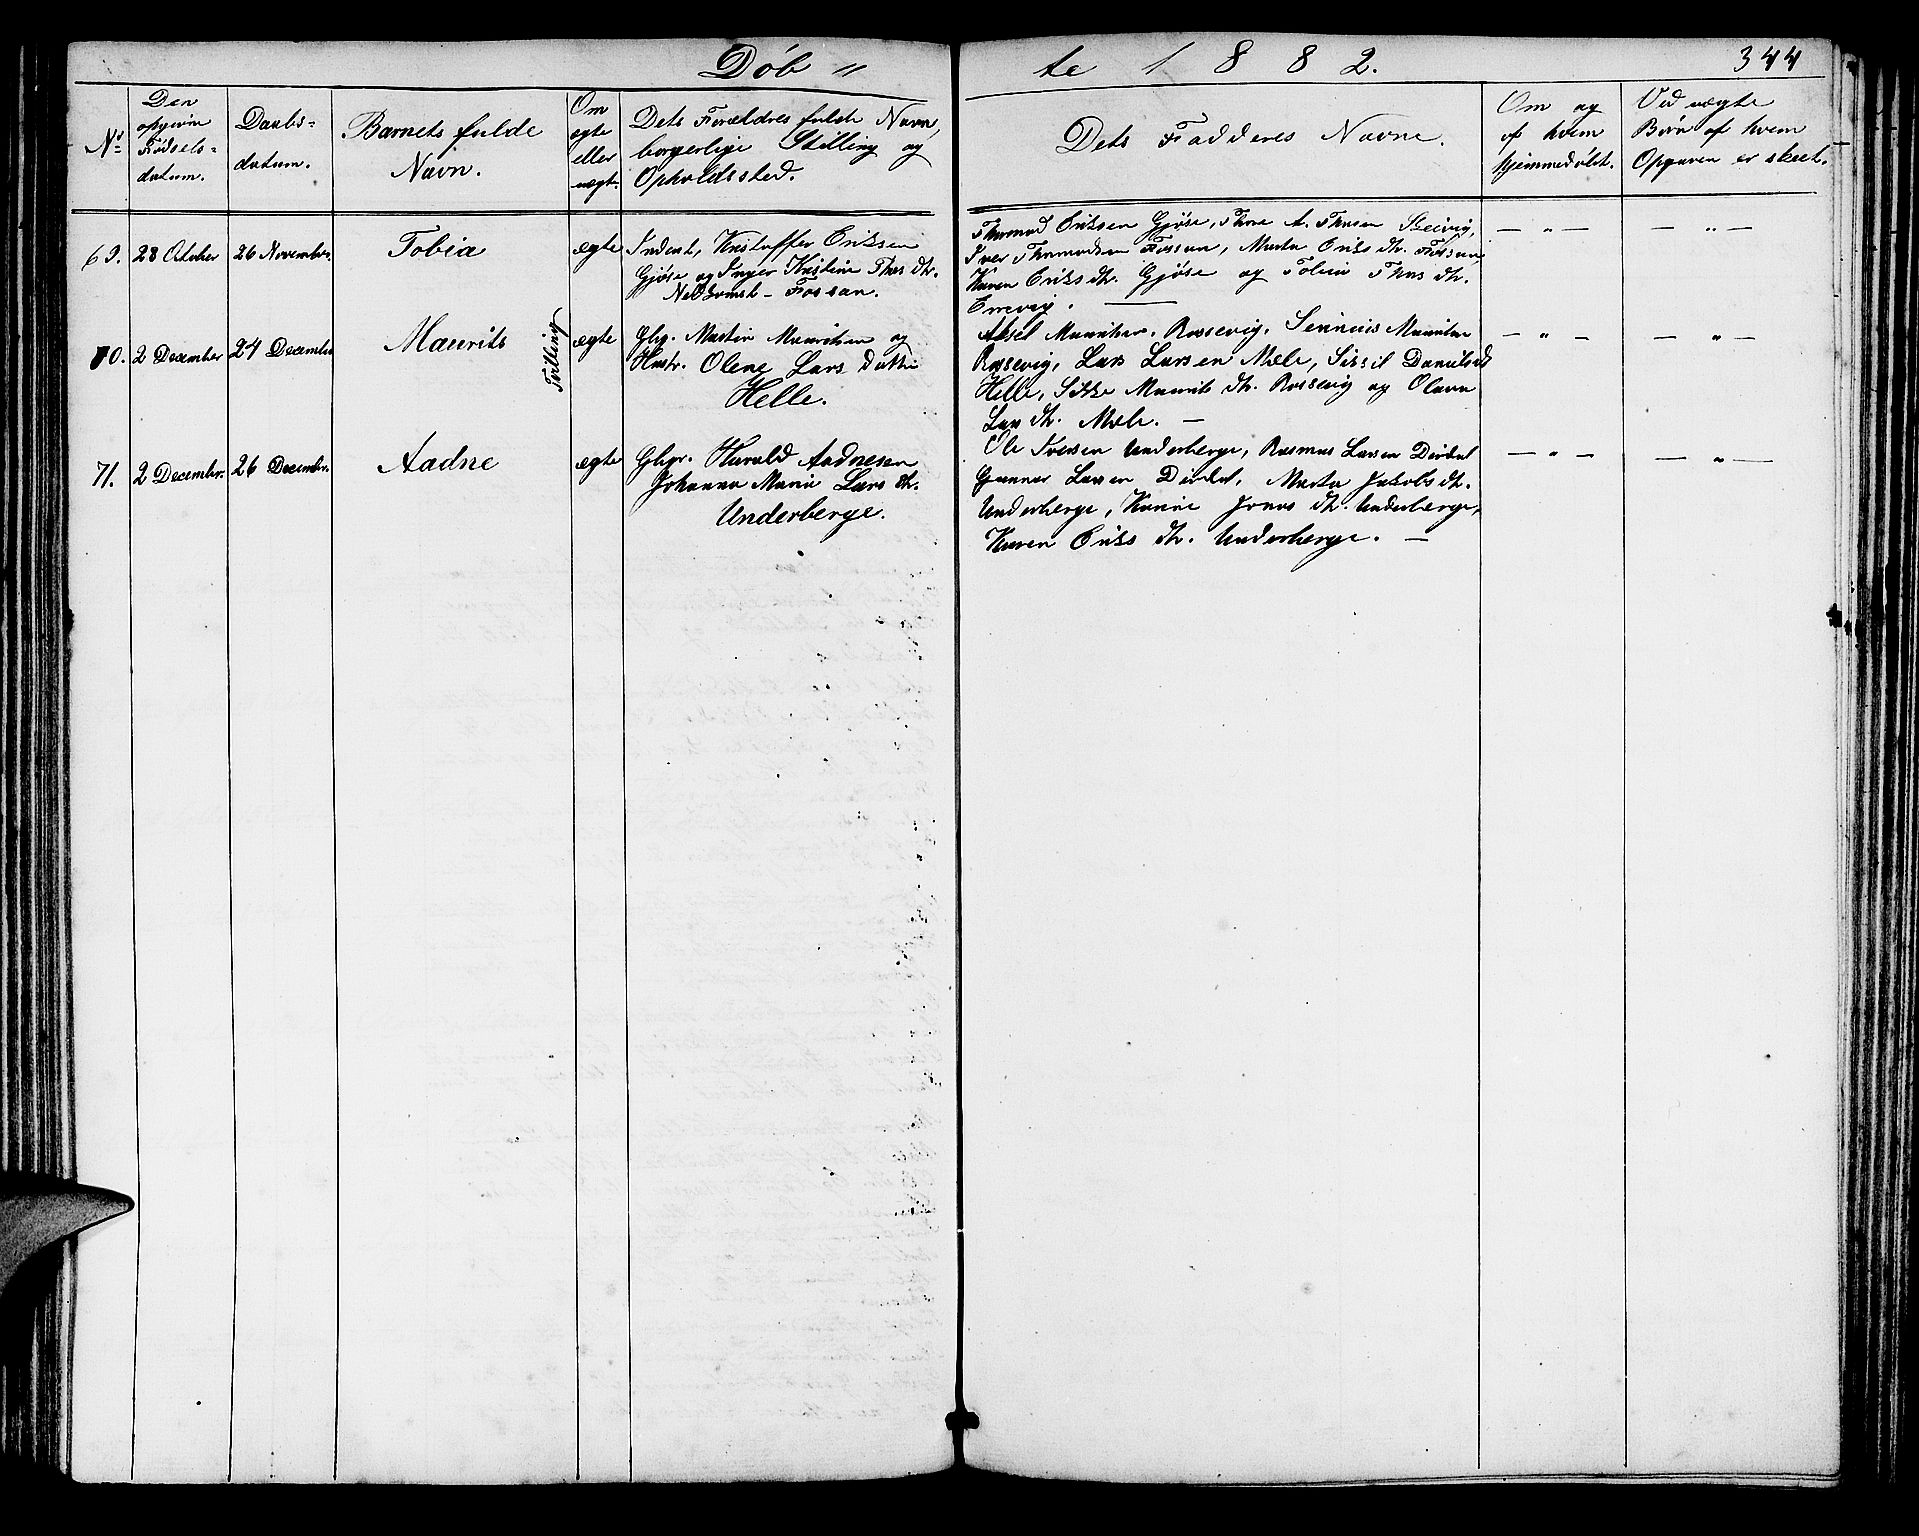 Døb〃
te 1882.
344
No
Den
opgivne
Fødsels-
datum.
Daabs-
datum.
Barnets fulde
Navn.
Om
ægte
eller
uægt.
Dets Forældres fulde Navn,
borgerlige Stilling og
Opholdssted.
Dets Fadderes Navne.
Om og
af hvem
hjemmedøbt.
Ved uægte
Børn af hvem
Opgaven er skeet.
69.
28 October
26 November.
Tobia
ægte
Indent, Kristoffer Eriksen
Gjøse og Inger Kristine Thors dtr.
Fossan.
Thormod Eriksen Gjøse, Thore A. Thorsen
Iver Thormodsen Fossan, Marta Eriks dtr. Fossan,
Karen Eriks dtr. Gjøse og Thors dtr.
— 〃 —
— 〃 —
70.
2 December
24 December
Maurits
Tvilling
ægte
Gbgr. Martin Mauritsen og
Hustr. Olene Lars Datter
Helle.
Aksel Mauritsen Rossevig, Mauritsen
Rossevig, Lars Larsen Mæle, Sissil Danielsd.
Helle, Maurits dtr. Rossevig og Olava
Lars dtr. Mæle. —
— 〃 —
— 〃 —
71.
2 December.
26 December.
Aadne
ægte
Gbgr. Harald Aadnesen
Johanna Marie Lars dtr.
Underberge.
Ole Iversen Underberge, Rasmus Larsen Dirdal
Gunnar Larsen Dirdal, Marta Jakobs dtr.
Underberge, Karine Jonas dtr. Underberge,
Karen Eriks dtr. Underberge. —
— 〃 —
— 〃 —